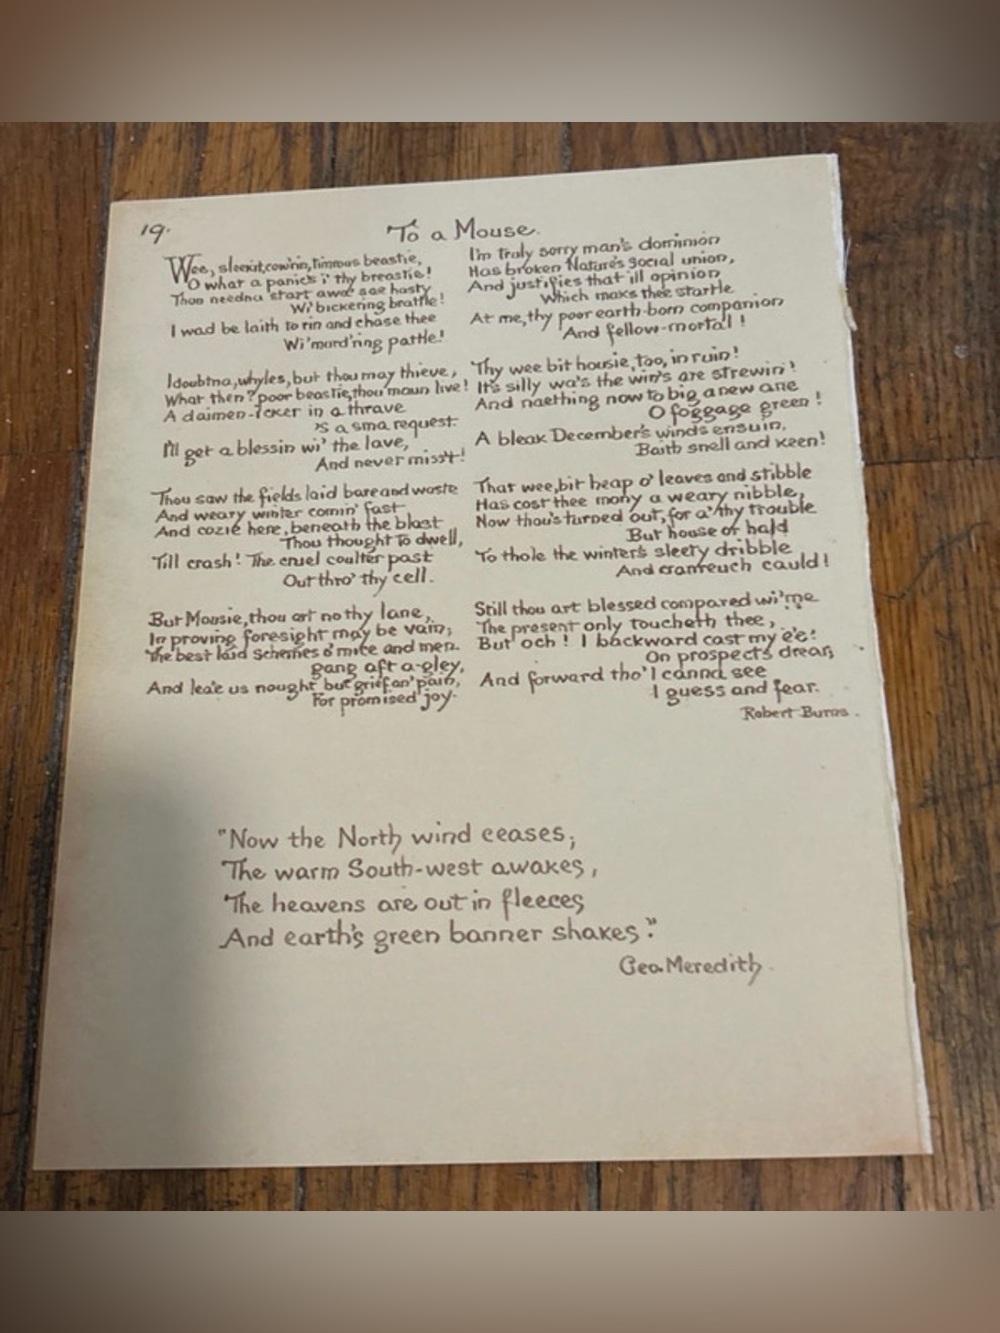 19.
To a Mouse.
Wee, sleekit, cow'rin, timrous beastie,
O what a panic's i' thy breastie!
Thou needna start awa sae hasty
Wi' bickering brattle!
I wad be laith to rin and chase thee
Wi' murd'ring pattle!
I doubtna, whyles, but thou may thieve,
What then? poor beastie, thou maun live!
A daimen-icker in a thrave
'S a sma request.
I'll get a blessin wi' the lave,
And never miss't!
Thou saw the fields laid bare and waste
And weary winter comin' fast
And cozie here, beneath the blast
Thou thought to dwell,
Till crash! The cruel coulter past
Out thro' thy cell.
But Mousie, thou art no thy lane,
In proving foresight may be vain;
The best laid schemes o' mice and men.
gang aft a-gley,
And lea'e us nought but grief an' pain,
For promised joy.
I'm truly sorry man's dominion
Has broken Nature's social union,
And justifies that ill opinion
Which maks thee startle
At me, thy poor earth-born companion
And fellow-mortal!
Thy wee bit housie, too, in ruin!
It's silly wa's the win's are strewin'!
And naething now to big a new ane
O foggage green!
A bleak December's winds ensuin,
Baith snell and keen!
That wee, bit heap o' leaves and stibble
Has cost thee mony a weary nibble,
Now thou's turned out, for a' thy trouble
But house or hald
To thole the winter's sleety dribble
And cranreuch cauld!
Still thou art blessed compared wi' me
The present only toucheth thee,
But och! I backward cast my e'e!
On prospects drear,
And forward tho' I canna see
I guess and fear.
Robert Burns.
"Now the North wind ceases,
The warm South-west awakes,
The heavens are out in fleeces
And earth's green banner shakes."
Geo. Meredith.